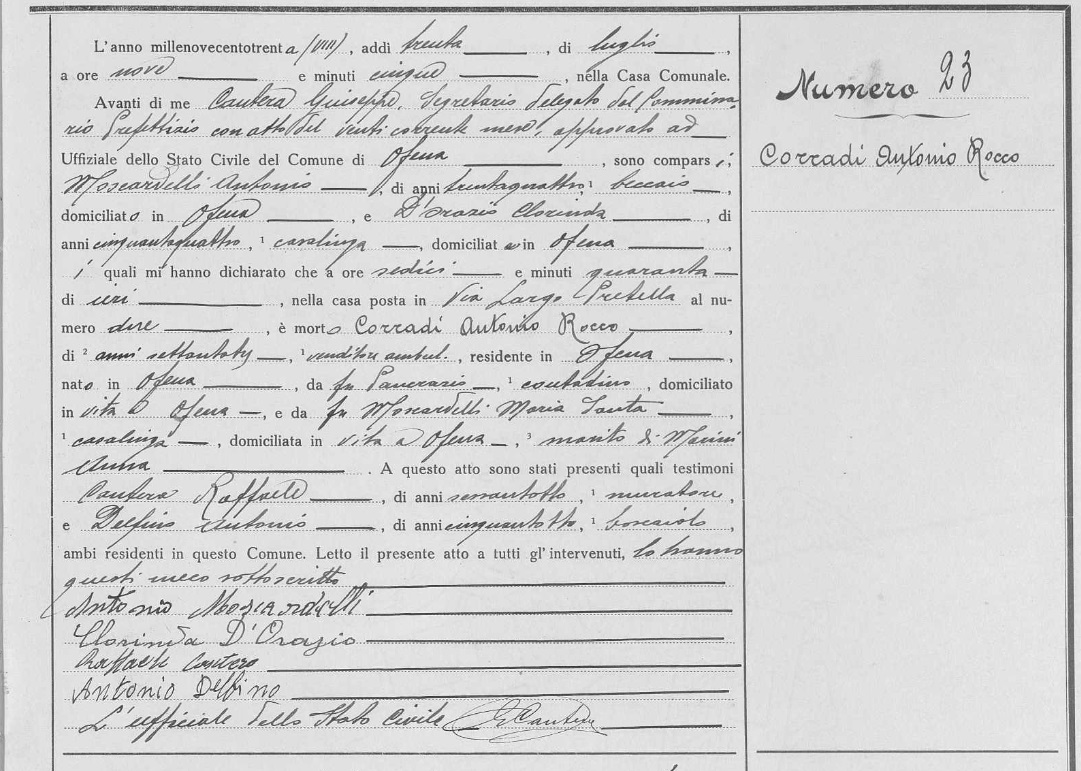 L'anno millenovecentotrenta (VIII), addì trenta, di luglio,
a ore nove e minuti cinque, nella Casa Comunale.
Avanti di me Cantera Giuseppe, Segretario delegato dal Commissa-
rio Prefettizio con atto del venti corrente mese, approvato ad
Uffiziale dello Stato Civile del Comune di Ofena, sono comparsi,
Moscardelli Antonio, di anni trentaquattro, ¹ beccaio,
domiciliato in Ofena, e D'Orazio Clorinda, di
anni cinquantaquattro, ¹ casalinga, domiciliata in Ofena,
i quali mi hanno dichiarato che a ore sedici e minuti quaranta
di ieri, nella casa posta in Via Largo Pretella al nu-
mero due, è morto Corradi Antonio Rocco,
di ² anni, ¹ venditore ambul., residente in Ofena,
nato in Ofena, da fu Pancrazio, ¹ contadino, domiciliato
in vita a Ofena, e da fu Moscardelli Maria Santa,
¹ casalinga, domiciliata in vita a Ofena, ³ marito di Marini
Anna. A questo atto sono stati presenti quali testimoni
Cantera Raffaele, di anni sessantotto, ¹ muratore,
e Delfino Antonio, di anni cinquantotto, ¹ boscaiolo,
ambi residenti in questo Comune. Letto il presente atto a tutti gl'intervenuti, lo hanno
questi meco sottoscritto
Antonio Moscardelli
Clorinda D'Orazio
Raffaele Cantera
Antonio Delfino
L'ufficiale dello Stato Civile G Cantera
Numero 23
Corradi Antonio Rocco